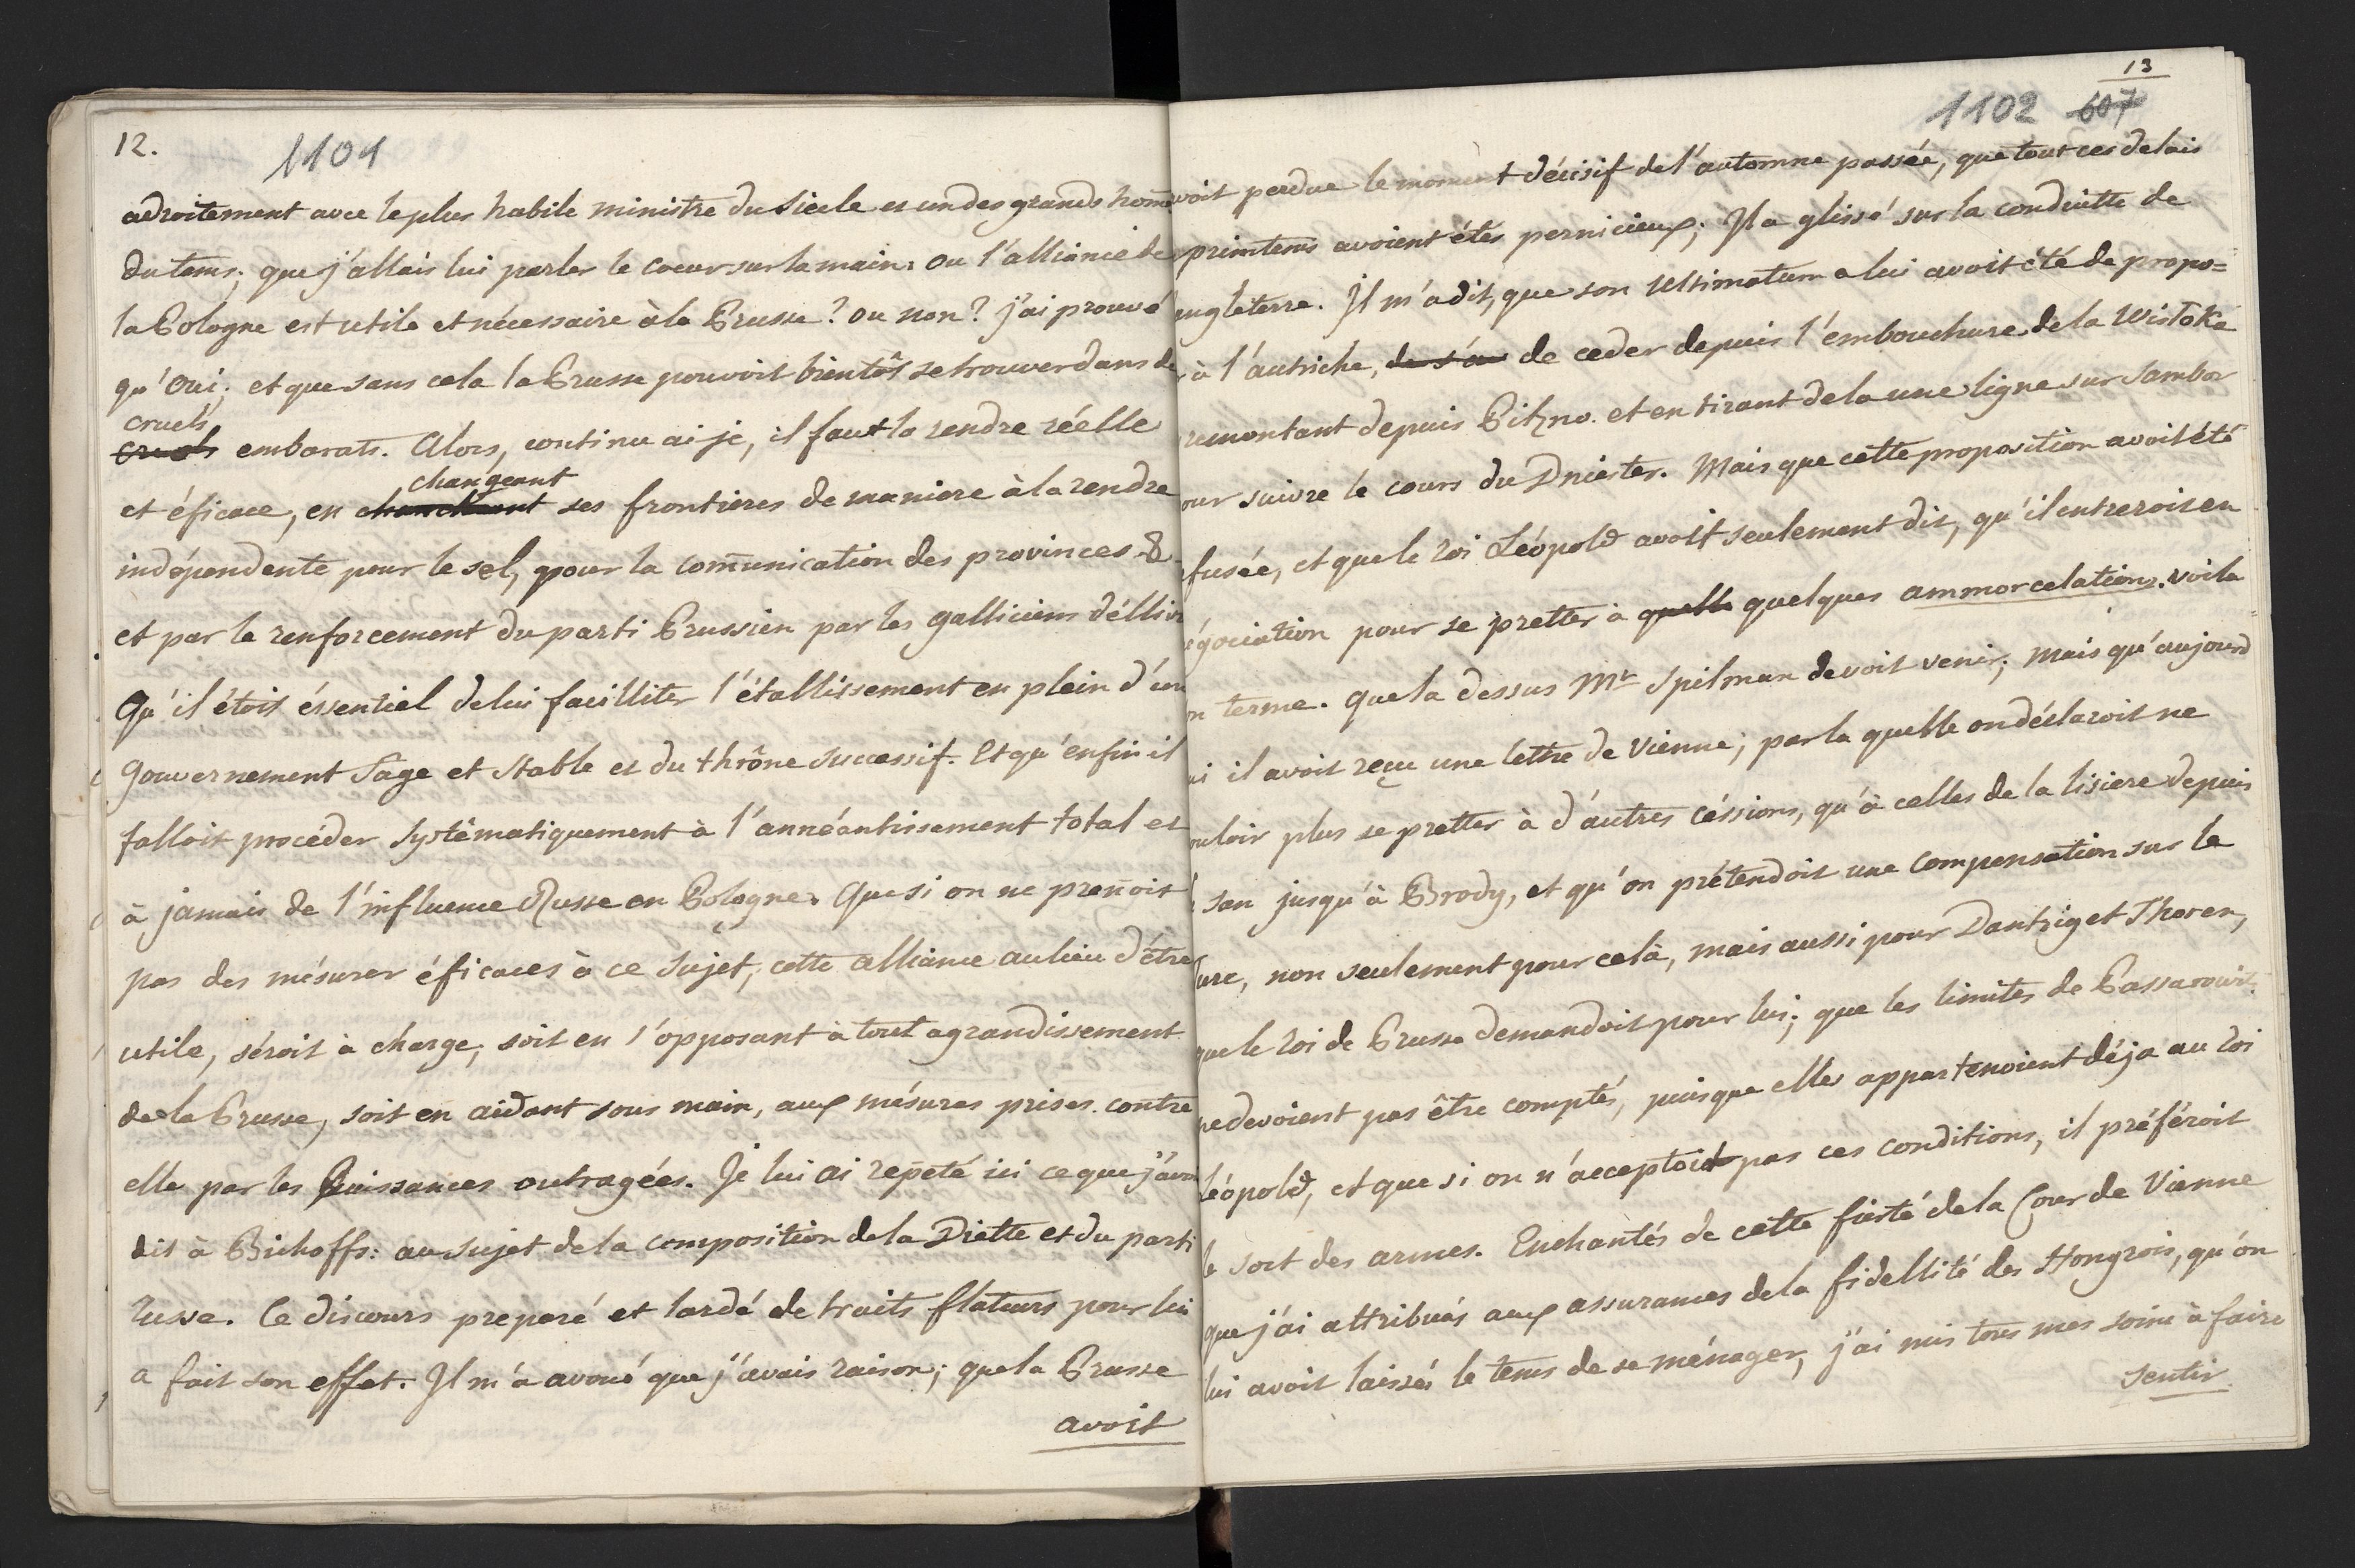 12.
1101
adroitement avec le plus habile ministre du Siecle et un des grands hom̄
du tems; que j'allais lui parler le coeur sur la main. ou l'alliance de
la Pologne est utile et nécessaire à la Prusse? ou non? j'ai prouvé
qu'oui; et que sans cela la Prusse pouvoit bientôt se trouver dans de
cruels
cruels embarats. Alors, continu ai je, il faut la rendre réelle
changeant
et éficace, en ses frontieres de maniere à la rendre
indépendente pour le sel, pour la com̄unication des provinces &
et par le renforcement du parti Prussien par les galliciens délliv
Qu'il étoit éssentiel de lui facilliter l'établissement en plein d'un
gouvernement Sage et Stable et du thrône successif. Et qu'enfin il
falloit procéder Systématiquement à l'annéantissement total et
à jamais de l'influence Russe en Pologne. Que si on ne preñoit
pas des mésures éficaces à ce Sujet, cette alliance au lieu d'être
utile, séroit à charge, soit en s'opposant à tout agrandissement
de la Prusse, soit en aidant sous main, aux mésures prises contre
elle par les Puissances outragées. Je lui ai repeté ici ce que j'avo
dit à Bichoffs: au sujet de la composition de la Diette et du parti
russe. Ce discours preparé et lardé de traits flateurs pour lui
a fait son effet. Il m'a avoué que j'avais raison; que la Prusse
avoit
13
1102 607
voit perdue le moment décisif de l'automne passée, que tout ces delais
printems avoient étés pernicieux; Il a glissé sur la conduitte de
engleterre. Il m'a dit, que son ultimatum a lui avoit été de propo=
r à l'autriche, de s'a de ceder depuis l'embouchure de la Wistoka
remontant depuis Pilzno. et en tirant de la une ligne sur Sambor
our suivre le cours du Dniester. Mais que cette proposition avoit été
fusée, et que le roi Léopold avoit seulement dit, qu'il entreroit en
égociation pour se pretter à quelle quelques ammorcelations. voila
n terme. que la dessus Mr Spilman devoit venir; mais qu'aujourd
ui il avoit reçue une lettre de Vienne; par la quelle on déclaroit ne
ouloir plus se pretter à d'autres céssions, qu'à celles de la lisiere depuis
San jusqu'à Brody, et qu'on prétendoit une compensation sur le
lure, non seulement pour celà, mais aussi pour Dantzig et Thoren,
que le roi de Prusse demandoit pour lui; que les limites de Passarowit
ne devoient pas être comptés, puisque elles appartenoient déja au roi
Léopold, et que si on n'acceptoit pas ces conditions, il préféroit
le sort des armes. Enchantés de cette fierté de la Cour de Vienne
que j'ai attribués aux assurances de la fidellité des Hongrois, qu'on
lui avoit laissés le tems de se ménager, j'ai mis tous mes soins à faire
sentir